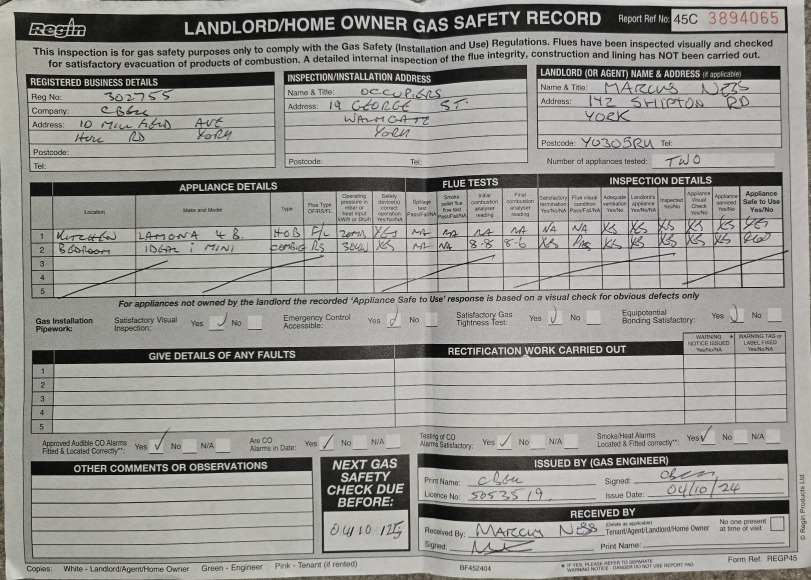 Regin LANDLORD/HOME OWNER GAS SAFETY RECORD Report Ref No: 45C 3894065
This inspection is for gas safety purposes only to comply with the Gas Safety (Installation and Use) Regulations. Flues have been inspected visually and checked
for satisfactory evacuation of products of combustion. A detailed internal inspection of the flue integrity, construction and lining has NOT been carried out.
REGISTERED BUSINESS DETAILS
Reg No: 302755
Company:
Address: 10 AVE
RD YORK
Postcode:
Tel:
INSPECTION/INSTALLATION ADDRESS
Name & Title: OCCUPIERS
Address: 19 GEORGE ST.
WALMGATE
YORK
Postcode: Tel:
LANDLORD (OR AGENT) NAME & ADDRESS (if applicable)
Name & Title: MARCUS NESS
Address: 142 SHIPTON RD
YORK
Postcode: YO305RU Tel:
Number of appliances tested: TWO
APPLIANCE DETAILS FLUE TESTS INSPECTION DETAILS
Location
Make and Model
Type
Flue Type OF/RS/FL
Operating pressure in mbar or heat input kW/h or Btu/h
Safety device(s) correct operation Yes/No/NA
Spillage test Pass/Fail/NA
Smoke pellet flue flow test Pass/Fail/NA
Initial combustion analyser reading
Final combustion analyser reading
Satisfactory termination Yes/No/NA
Flue visual condition Pass/Fail/NA
Adequate ventilation Yes/No
Landlord's appliance Yes/No/NA
Inspected Yes/No
Appliance Visual Check Yes/No
Appliance serviced Yes/No
Appliance Safe to Use Yes/No
1 KITCHEN LAMONA 4 B. HOB F/L 20MB YES NA NA NA NA NA NA YES YES YES YES YES YES
2 BEDROOM IDEAL i MINI COMBI RS 30KW YES NA NA 8-8 8-6 YES PAS YES YES YES YES YES
3
4
5
For appliances not owned by the landlord the recorded 'Appliance Safe to Use' response is based on a visual check for obvious defects only
Gas Installation Pipework: Satisfactory Visual Inspection: Yes ✓ No Emergency Control Accessible: Yes ✓ No Satisfactory Gas Tightness Test: Yes ✓ No Equipotential Bonding Satisfactory: Yes ✓ No
GIVE DETAILS OF ANY FAULTS RECTIFICATION WORK CARRIED OUT WARNING NOTICE ISSUED Yes/No/NA * WARNING TAG or LABEL FIXED Yes/No/NA
1
2
3
4
5
Approved Audible CO Alarms Fitted & Located Correctly**: Yes ✓ No N/A Are CO Alarms in Date: Yes ✓ No N/A Testing of CO Alarms Satisfactory: Yes ✓ No N/A Smoke/Heat Alarms Located & Fitted correctly**: Yes ✓ No N/A
OTHER COMMENTS OR OBSERVATIONS
NEXT GAS
SAFETY
CHECK DUE
BEFORE:
04/10/25
ISSUED BY (GAS ENGINEER)
Print Name: Signed:
Licence No: 5053519. Issue Date: 04/10/24
RECEIVED BY
Received By: MARCUS NESS (Delete as applicable) Tenant/Agent/Landlord/Home Owner No one present at time of visit
Signed: Print Name:
Copies: White - Landlord/Agent/Home Owner Green - Engineer Pink - Tenant (if rented) BF452404 * IF YES, PLEASE REFER TO SEPARATE WARNING NOTICE - DANGER DO NOT USE REPORT PAD Form Ref. REGP45
© Regin Products Ltd